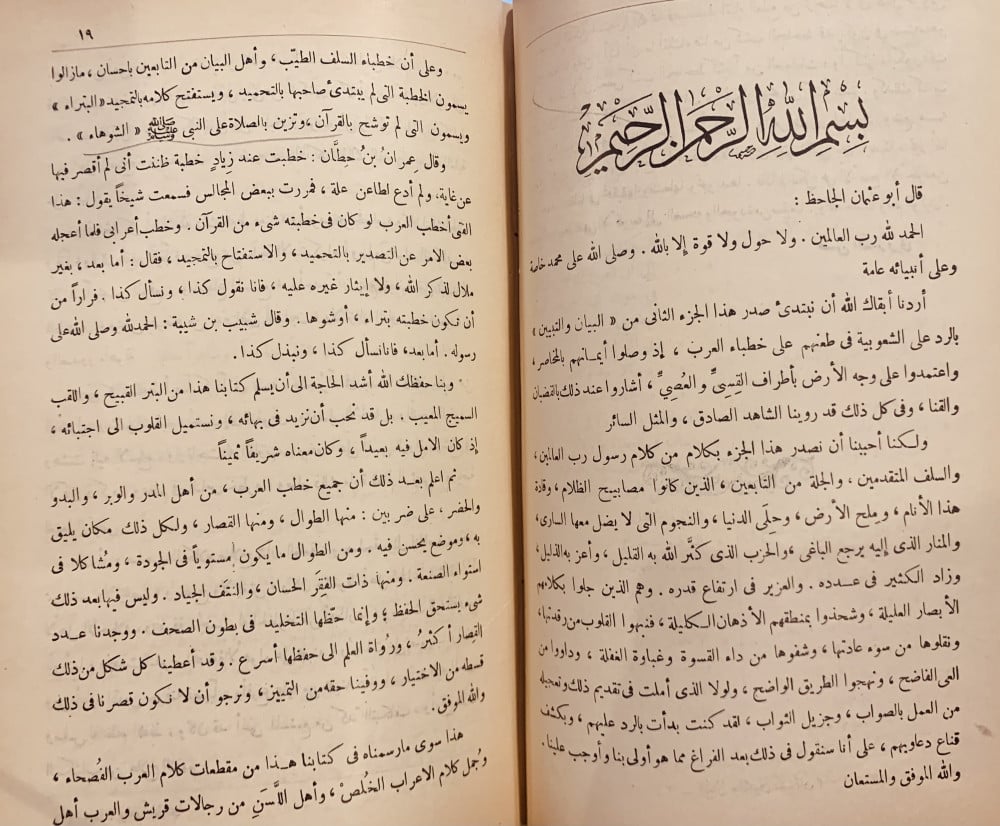 بسم الله الرحمن الرحيم
قال أبو عثمان الجاحظ :
الحمد لله رب العالمين . ولا حول ولا قوة إلا بالله . وصلى الله على محمد خاصة
وعلى أنبيائه عامة
أردنا أبقاك الله أن نبتدئ صدر هذا الجزء الثانى من « البيان والتبيين »
بالرد على الشعوبية فى طعنهم على خطباء العرب ، إذ وصلوا أيمـانهم بالمخاصر ،
واعتمدوا على وجه الأرض بأطراف القِسِىِّ والعُصِىِّ ، أشاروا عند ذلك بالقضبان
والقنا ، وفى كل ذلك قد روينا الشاهد الصادق ، والمثل السائر
ولكنا أحببنا أن نصدر هذا الجزء بكلام من كلام رسول رب العالمين ،
والسلف المتقدمين ، والجلة من التابعين ، الذين كانوا مصابيح الظلام ، وقادة
هذا الأنام ، ومِلح الأرض ، وحلَى الدنيا ، والنجوم التى لا يضل معها السارى ،
والمنار الذى إليه يرجع الباغى ، والحزب الذى كثَّر الله به القليل ، وأعز به الذليل ،
وزاد الكثير فى عـدده . والعزيز فى ارتفاع قدره . وهم الذين جلوا بكلامهم
الأبصار العليلة ، وشحذوا بمنطقهم الأذهان الـكليلة ، فنبهوا القلوب من رقدتها ،
ونقلوها من سوء عادتها ، وشفوها من داء القسوة وغباوة الغفلة ، وداووا من
العى الفاضح ، ونهجوا الطريق الواضح ، ولولا الذى أملت فى تقديم ذلك وتعجيله
من العمل بالصواب ، وجزيل الثواب ، لقد كنت بدأت بالرد عليهم ، وبكشف
قناع دعاويهم ، على أنا سنقول فى ذلك بعد الفراغ مما هو أولى بنا وأوجب علينا .
والله الموفق والمستعان
١٩
وعلى أن خطباء السلف الطيّب ، وأهل البيان من التابعين باحسان ، مازالوا
يسمون الخطبة التى لم يبتدئ صاحبها بالتحميد ، ويستفتح كلامه بالتمجيد « البتراء »
ويسمون التى لم توشح بالقرآن ، وتزين بالصلاة على النبى ﷺ « الشوهاء » .
وقال عِمران بُن حطَّان : خطبت عند زِيادٍ خطبة ظننت أنى لم أقصر فيها
عن غاية ، ولم أدع لطاعن علة ، فمررت ببعض المجالس فسمعت شيخاً يقول : هذا
الفتى أخطب العرب لو كان فى خطبته شىء من القرآن . وخطب أعرابى فلما أعجله
بعض الامر عن التصدير بالتحميد ، والاستفتاح بالتمجيد ، فقال : أما بعد ، بغير
ملال لذكر الله ، ولا إيثار غيره عليه ، فانا نقول كذا ، ونسأل كذا . فراراً من
أن تكون خطبته بتراء ، أوشوها . وقال شبيب بن شيبة : الحمدلله وصلى الله على
رسوله . أما بعد ، فانا نسأل كذا ، ونبذل كذا .
وبنا حفظك الله أشد الحاجة الى أن يسلم كتابنا هذا من البتر القبيح ، واللقب
السميج المعيب . بل قد نحب أن نزيد فى بهائه ، ونستميل القلوب الى اجتبائه ،
إذ كان الامل فيه بعيداً ، وكان معناه شريفاً ثميناً
ثم اعلم بعـد ذلك أن جميع خطب العرب ، من أهل المدر والوبر ، والبدو
والحضر ، على ضربين : منها الطوال ، ومنها القصار ، ولكل ذلك مكان يليق
به ، وموضع يحسن فيه . ومن الطوال ما يكون مستوياً فى الجودة ، ومُشاكلا فى
استواء الصنعة . ومنها ذات الفِقَر الحسان ، والنتَف الجياد . وليس فيها بعد ذلك
شىء يستحق الحفظ ؛ وإنما حظّها التخليد فى بطون الصحف . ووجدنا عـدد
القصار أكثرُ ، ورُواة العلم الى حفظها أسرع . وقد أعطينا كل شكل من ذلك
قسطه من الاختيار ، ووفينا حقه من التمييز ، ونرجو أن لا نكون قصرنا فى ذلك
والله الموفق .
هذا سوى مارسمناه فى كتابنا هـذا من مقطعات كلام العرب الفُصحاء ،
وجُمل كلام الاعراب الخُلص ، وأهل اللَّسَنِ من رجالات قريش والعرب أهل